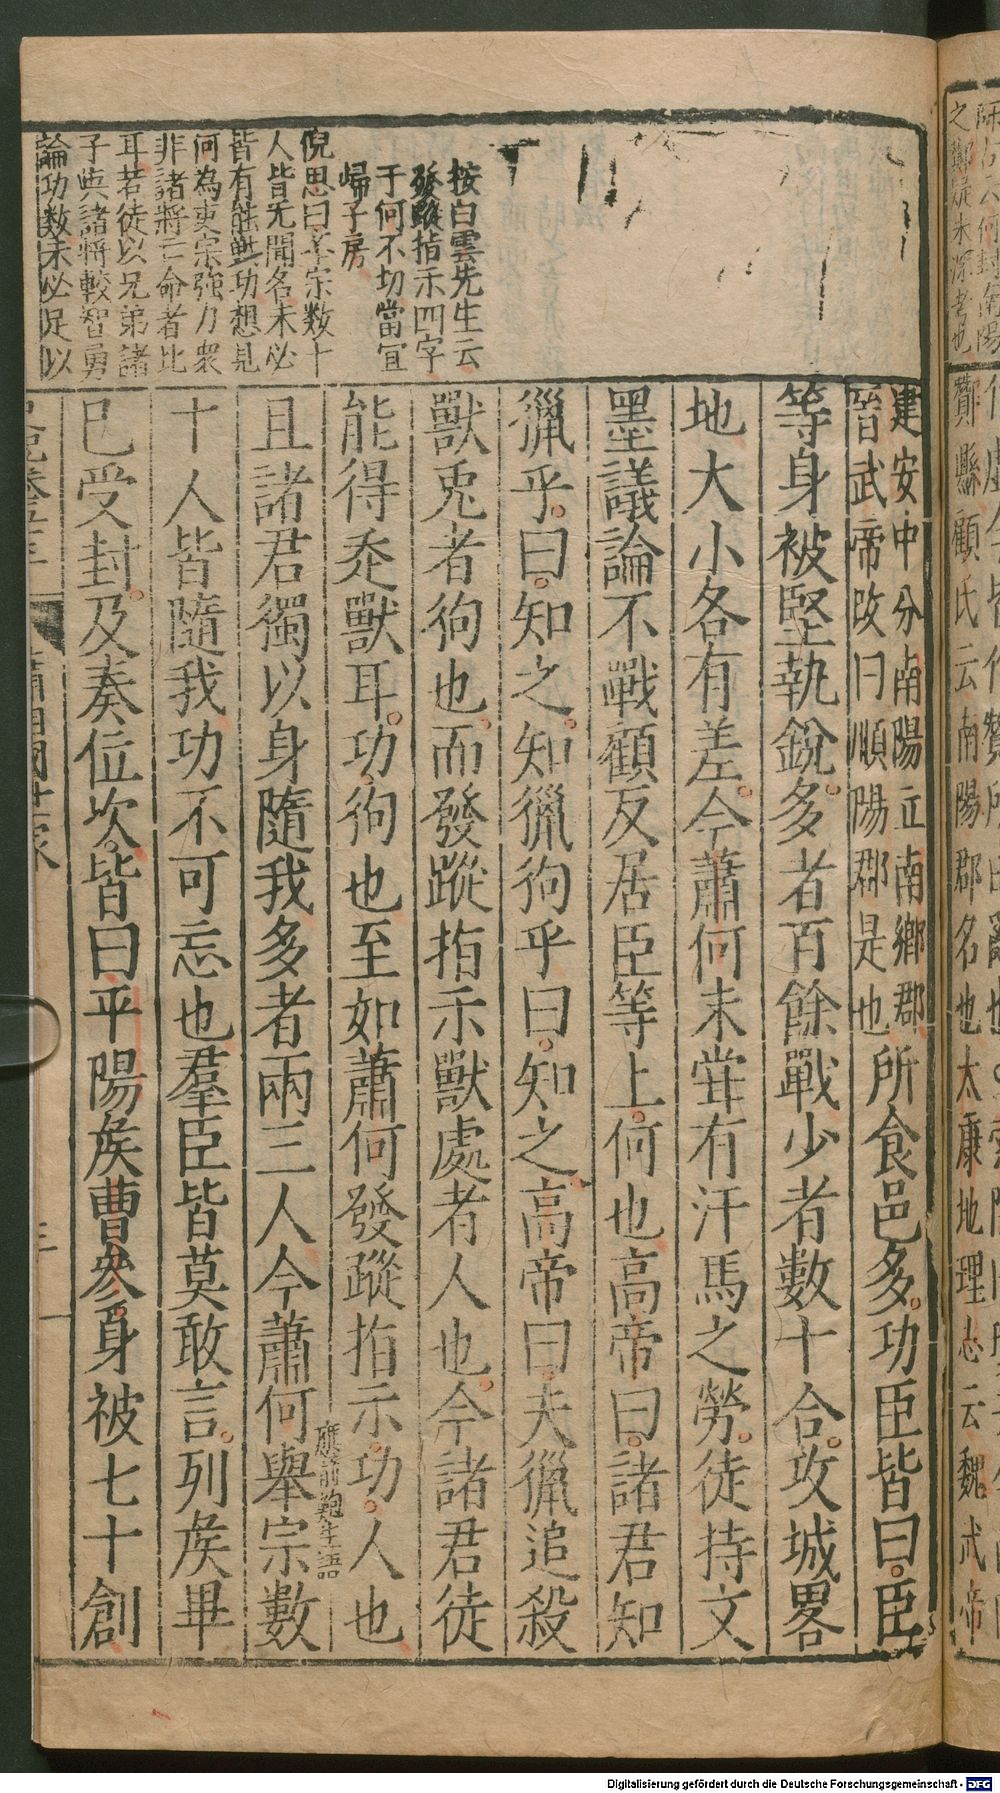 按白雲先生云
發蹤指示四字
于何不切當宜
歸子房
倪思曰舉宗数十
人皆无聞名未必
皆有能與功想見
何為吏宗強力衆
非諸將亡命者比
耳若徒以兄弟諸
子與諸將較智勇
論功数未必足以
建安中分南陽立南鄉郡
晉武帝改曰順陽郡是也
所食邑多功臣皆曰臣
等身被堅執銳多者百餘戰少者數十合攻城畧
地大小各有差今蕭何未甞有汗馬之勞徒持文
墨議論不戰顧反居臣等上何也高帝曰諸君知
獵乎曰知之知獵狗乎曰知之高帝曰夫獵追殺
獸兎者狗也而發蹤指示獸處者人也今諸君徒
能得走獸耳功狗也至如蕭何發蹤指示功人也
應前鮑生語
且諸君獨以身隨我多者兩三人今蕭何舉宗數
十人皆隨我功不可忘也羣臣皆莫敢言列矦畢
已受封及奏位次皆曰平陽矦曹參身被七十創
贊縣顧氏云南陽郡名也太康地理志云魏武帝
Digitalisierung gefördert durch die Deutsche Forschungsgemeinschaft - DFG